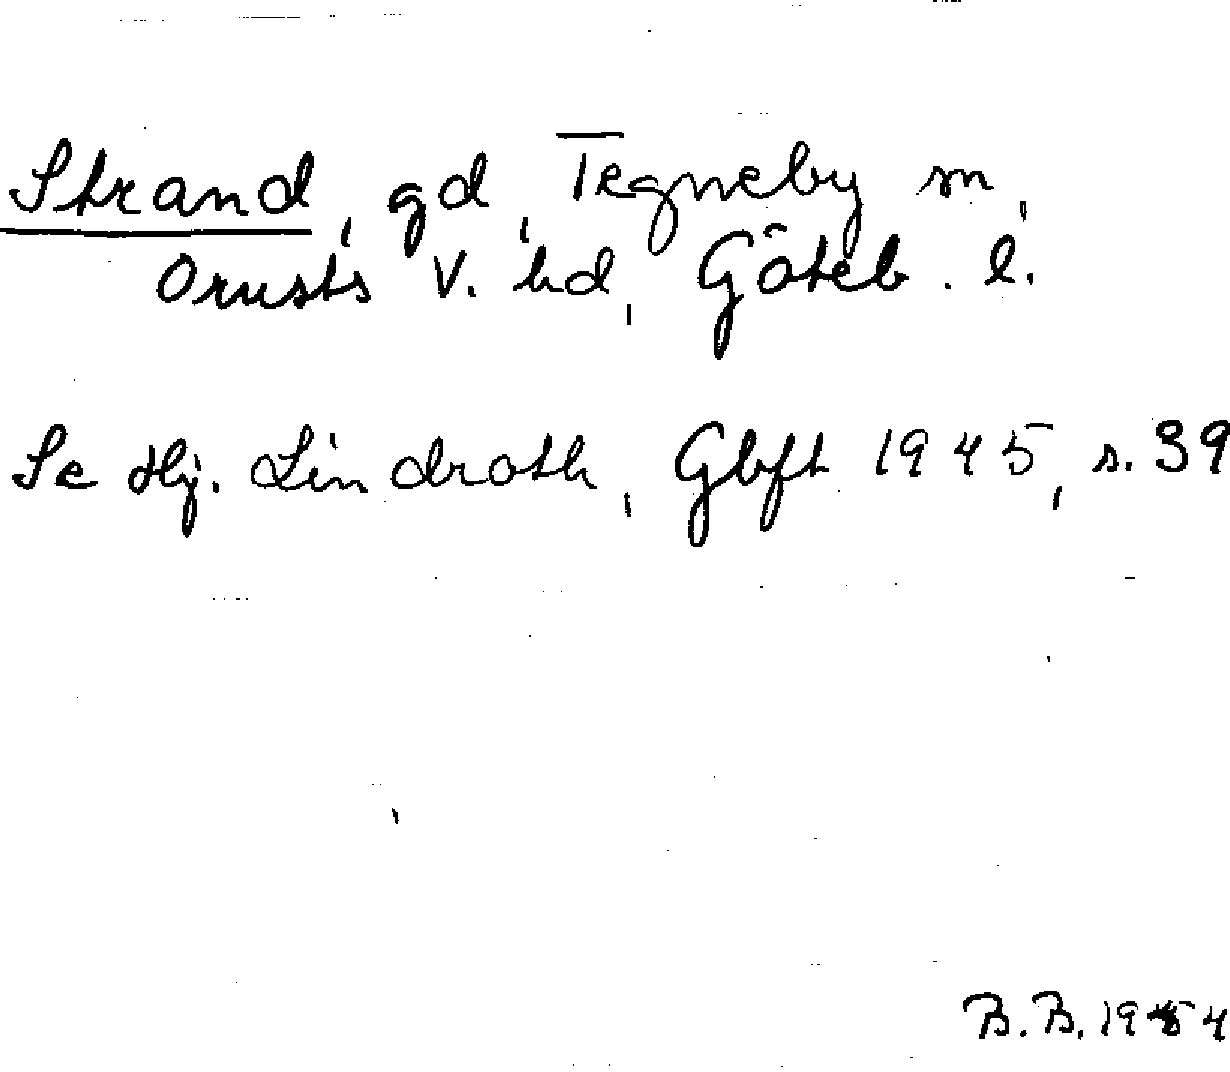 Strand, gd, Tegneby sn,
Orusts V. hd, Göteb. l.
Se Hj. Lindroth, Gbft 1945, s. 39
B.B. 1954